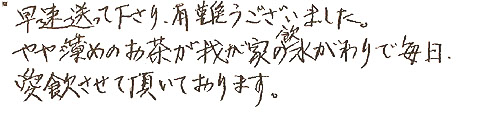 早速送って下さり、有難うございました。
やや薄めのお茶が我が家の飲水がわりで毎日、
愛飲させて頂いております。